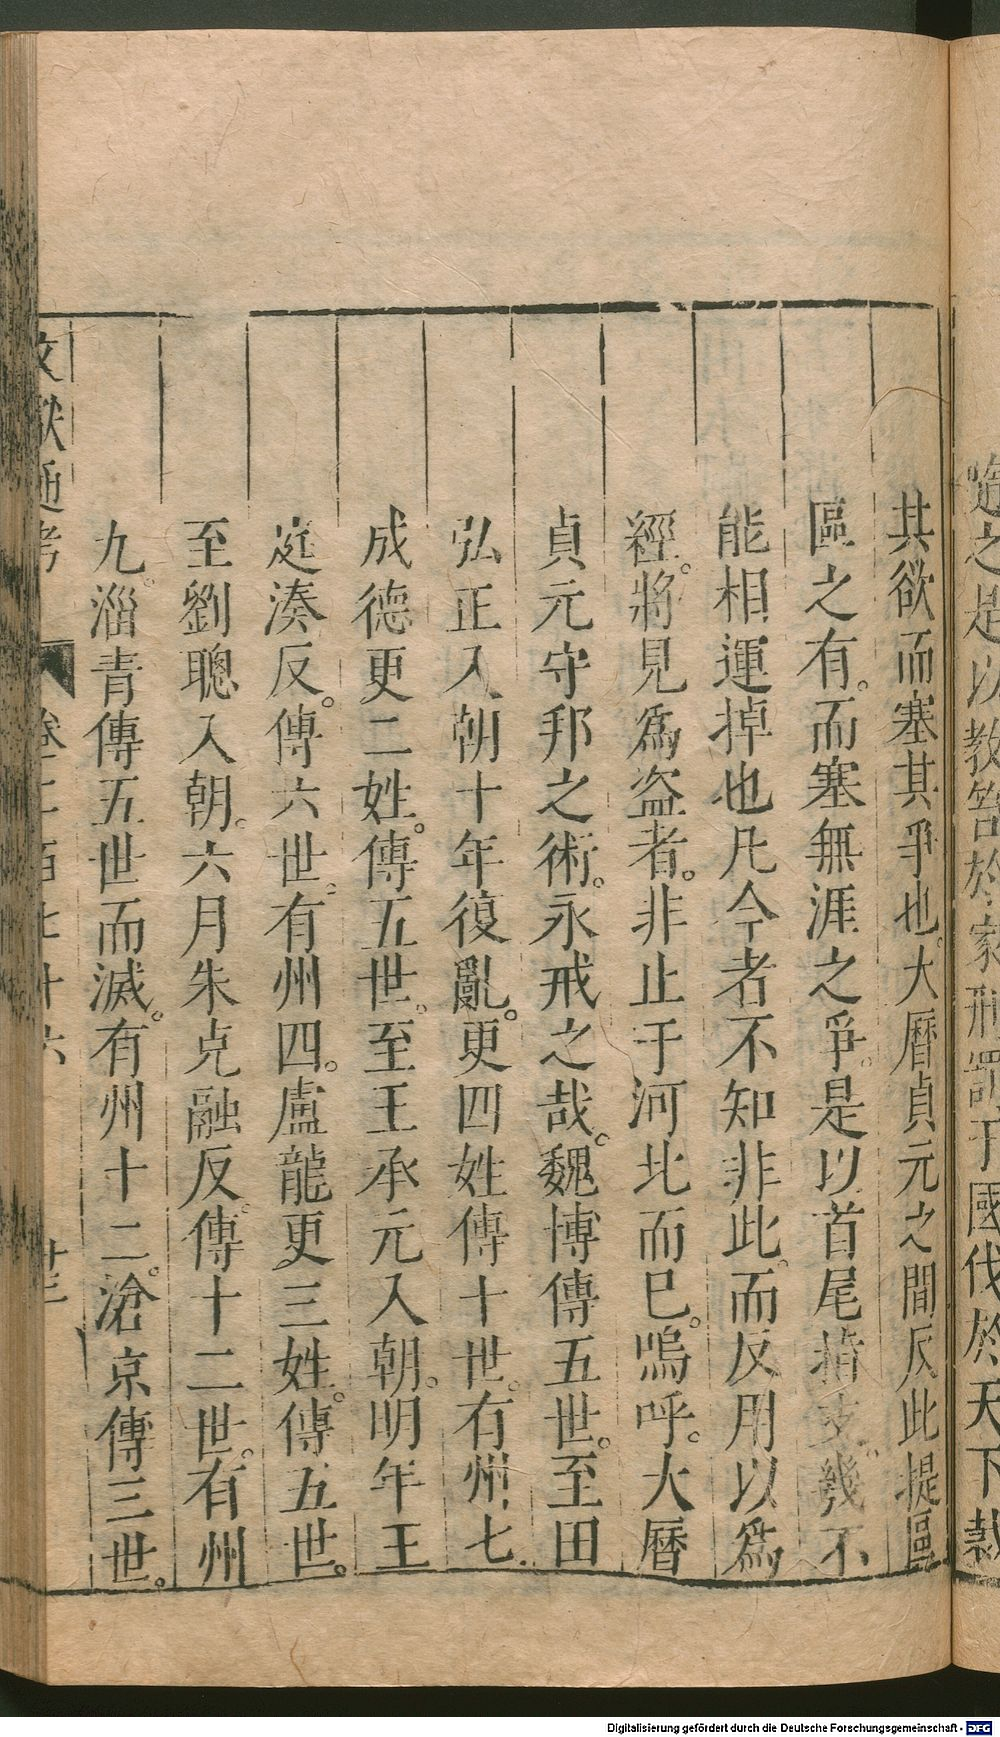 造之是以教笞於家刑罰于國伐於天下裁
其欲而塞其爭也。大曆貞元之間反此提區
區之有。而塞無涯之爭。是以首尾指支。幾不
能相運掉也凡今者不知非此。而反用以爲
經。將見爲盗者。非止于河北而已。嗚呼。大曆
貞元守邦之術。永戒之哉。魏博傳五世。至田
弘正入朝十年復亂。更四姓傳十世。有州七。
成德更二姓。傳五世。至王承元入朝。明年王
庭湊反。傳六世。有州四。盧龍更三姓。傳五世。
至劉聰入朝。六月朱克融反。傳十二世。有州
九。淄青傳五世而滅。有州十二。滄京傳三世。
文獻通考 卷二百七十六 廿三
Digitalisierung gefördert durch die Deutsche Forschungsgemeinschaft - DFG